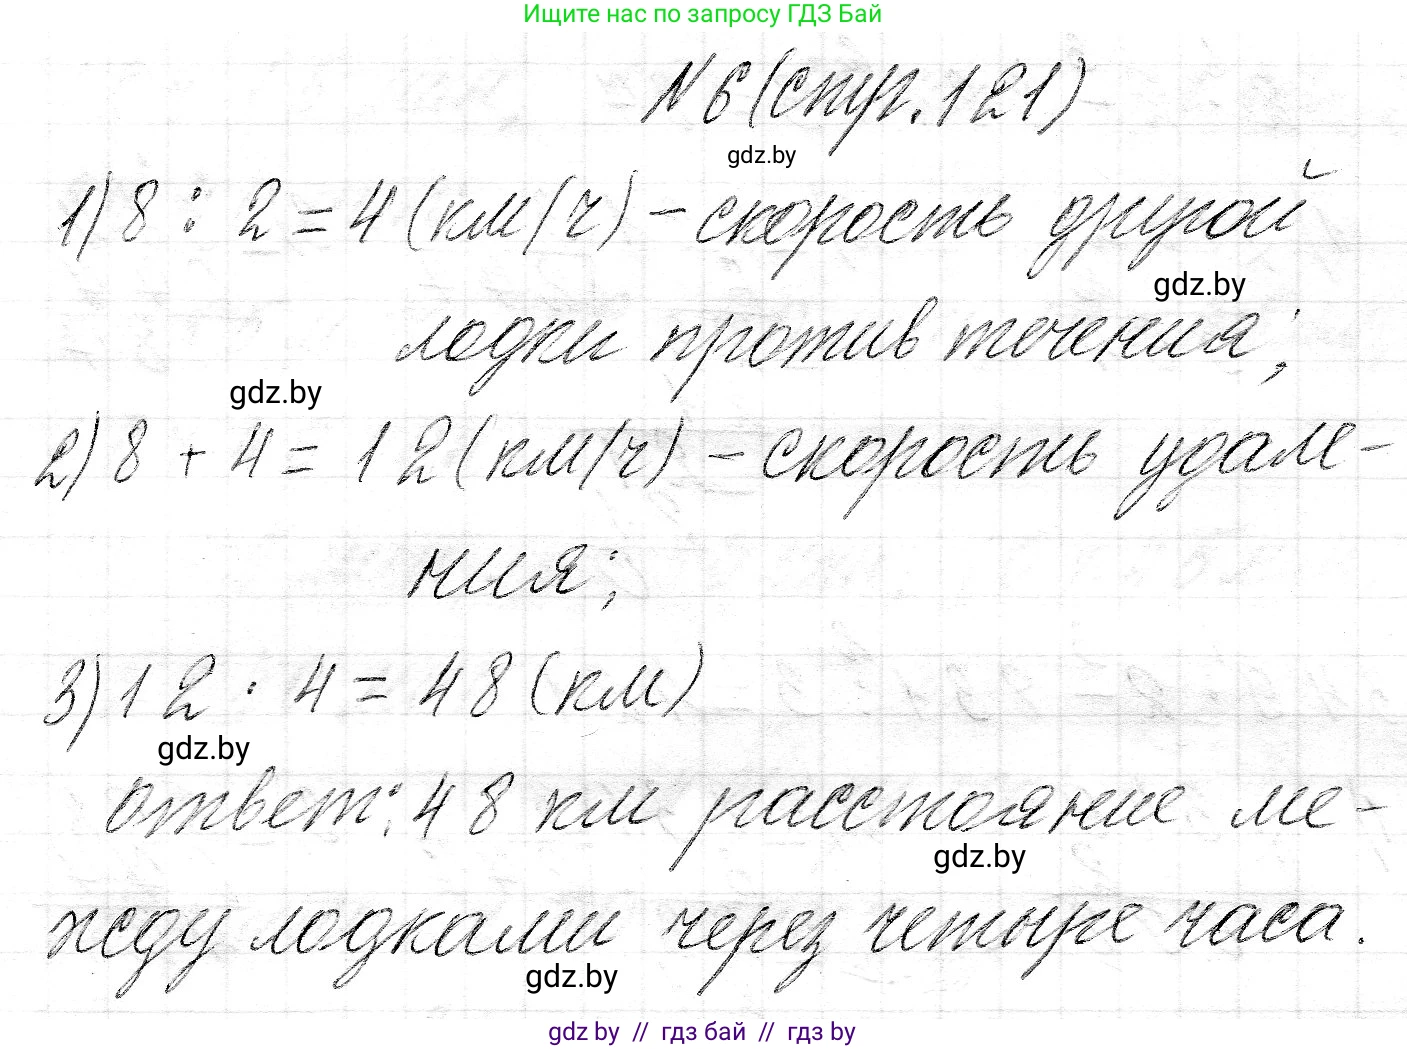 Ищите нас по запросу ГДЗ Бай
№6 (стр. 121)
gdz.by
1) 8 : 2 = 4 (км/ч) - скорость другой
gdz.by
лодки против течения;
gdz.by
2) 8 + 4 = 12 (км/ч) - скорость удале-
ния;
3) 12 · 4 = 48 (км)
gdz.by
ответ: 48 км расстояние ме-
gdz.by
жду лодками через четыре часа.
gdz.by
gdz by // гдз бай // гдз by